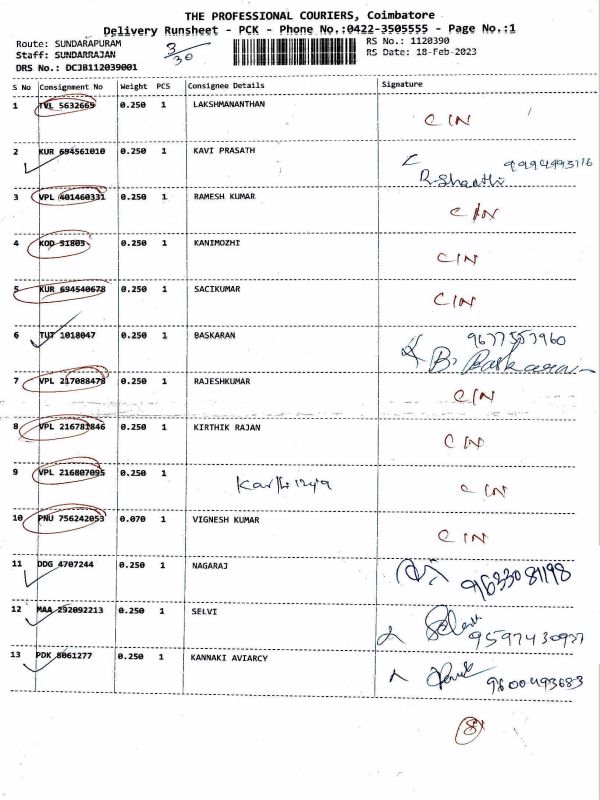 THE PROFESSIONAL COURIERS, Coimbatore
Delivery Runsheet - PCK - Phone No.:0422-3505555 - Page No.:1
Route: SUNDARAPURAM 3/30 RS No.: 1120390
Staff: SUNDARRAJAN RS Date: 18-Feb-2023
DRS No.: DCJB112039001
S No Consignment No Weight PCS Consignee Details Signature
1 TVL 5632665 0.250 1 LAKSHMANANTHAN CIN
2 KUR 694561010 0.250 1 KAVI PRASATH 9994993716
R. Shanthi
3 VPL 401460331 0.250 1 RAMESH KUMAR CIN
4 KOD 51805 0.250 1 KANIMOZHI CIN
5 KUR 694540678 0.250 1 SACIKUMAR CIN
6 TUT 1018047 0.250 1 BASKARAN 9677557960
B. Baskaran
7 VPL 217088478 0.250 1 RAJESHKUMAR CIN
8 VPL 216781846 0.250 1 KIRTHIK RAJAN CIN
9 VPL 216807095 0.250 1 Karthieya CIN
10 PNU 756242053 0.070 1 VIGNESH KUMAR CIN
11 DDG 4707244 0.250 1 NAGARAJ 9633081198
12 MAA 292092213 0.250 1 SELVI 9597430937
13 PDK 8061277 0.250 1 KANNAKI AVIARCY 9600493683
8